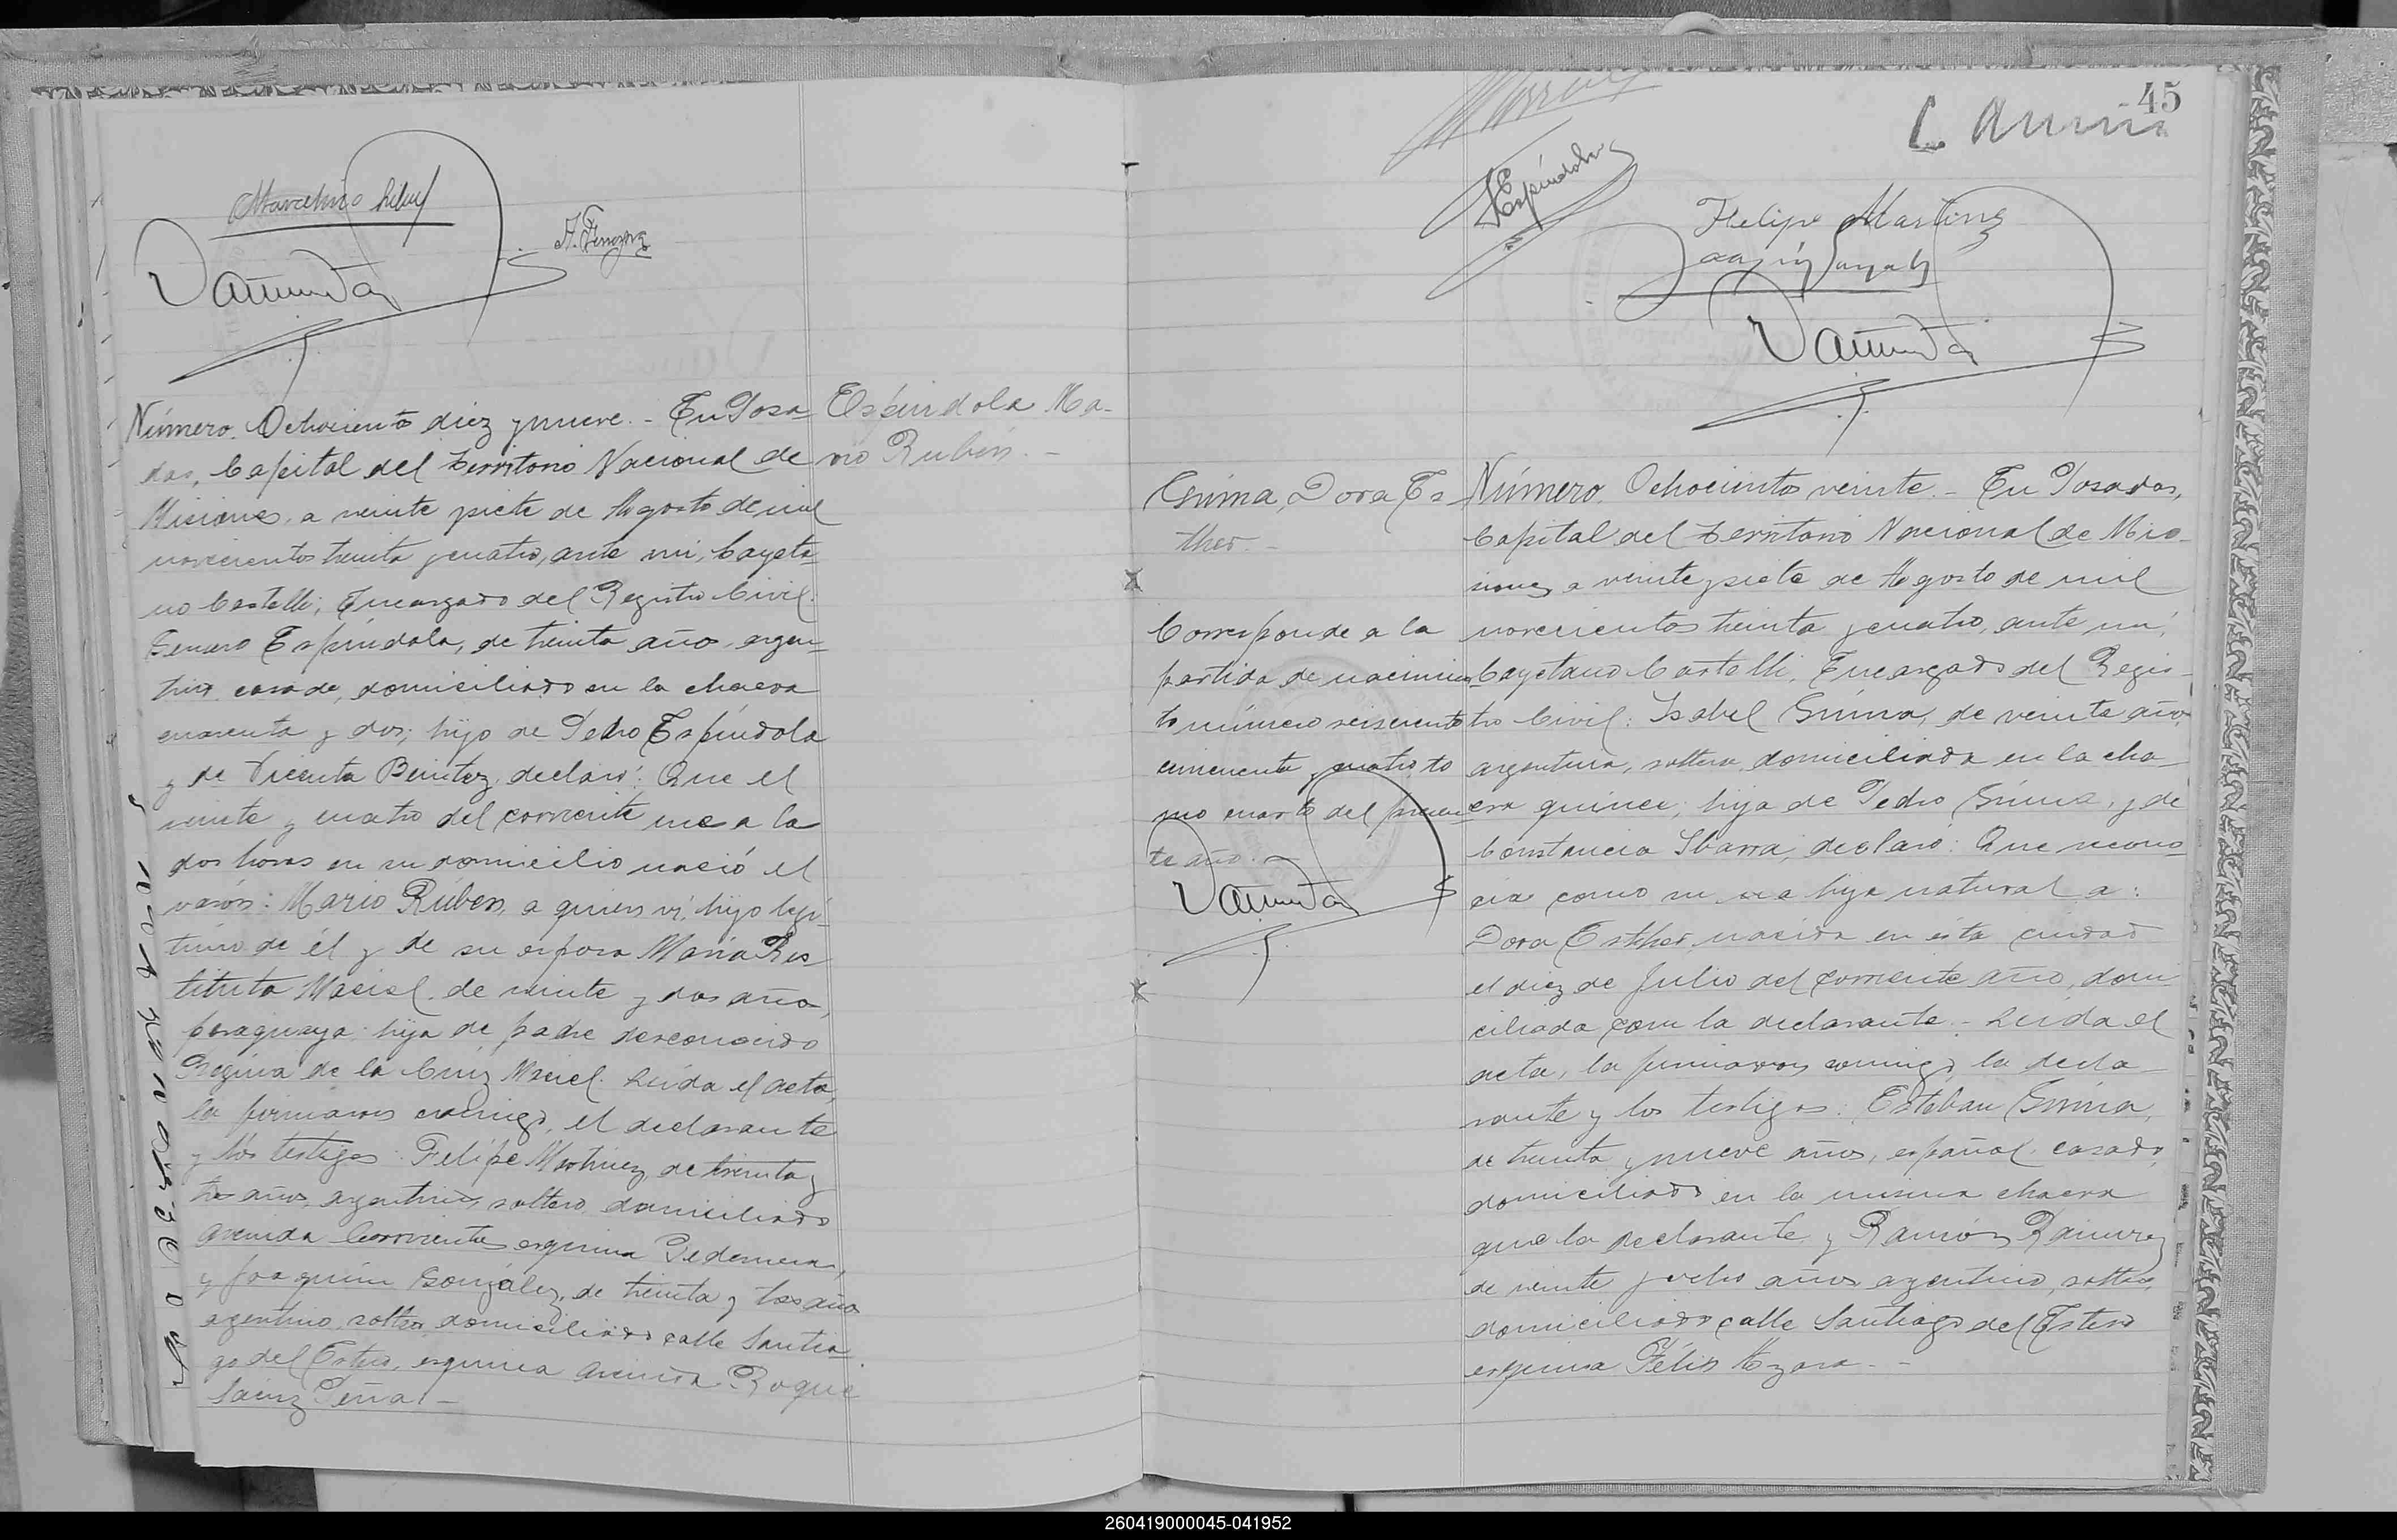 Número. Ochociento diez y nueve. - En Posa-
das, Capital del Territorio Nacional de
Misiones, a veinte y siete de Agosto de mil
novecientos treinta y cuatro, ante mi, Cayeta-
no Castelli, Encargado del Registro Civil.
Genaro Espíndola, de treinta año, argen-
tino, casado, domiciliado en la chacra
cuarenta y dos; hijo de Pedro Espíndola
y de Vicenta Benitez, declaró: Que el
veinte y cuatro del corriente mes a la
dos horas en su domicilio nació el
varón: Mario Rúben, a quien ví, hijo legí-
timo de él y de su esposa María Res-
tituta Maciel, de veinte y dos año,
paraguaya, hija de padre desconocido
Regina de la Cruz Maciel. Leída el acta,
la firmaron conmigo, el declarante
y los testigos: Felipe Martinez, de treinta y
tres años, argentino, soltero, domiciliado
Avenida Corrientes esquina Pedernera,
y Joaquín González, de treinta y tres año
argentino, soltero, domiciliado calle Santia-
go del Estero, esquina Avenida Roque
Saenz Peña. -
Espíndola Ma-
rio Rubén. -
45
Espíndola
Felipe Martinez
Gúima, Dora Es-
ther. -
Corresponde a la
partida de nacimien-
to número seiscento
cincuenta y cuatro to
mo cuarto del presen-
te año. -
Número. Ochociento veinte. - En Posadas,
Capital del Territorio Nacional de Misio-
nes, a veinte y siete de Agosto de mil
novecientos treinta y cuatro, ante mí,
Cayetano Castelli, Encargado del Regis-
tro Civil: Isabel Gúima, de veinte año,
argentina, soltera, domiciliada en la cha-
cra quince; hija de Pedro Gúima, y de
Constancia Ibarra, declaró: Que recono-
cia como su hija natural a:
Dora Esther, nacida en ésta ciudad
el diez de Julio del corriente año, domi
ciliada con la declarante. - Leída el
acta, la firmaron conmigo, la decla-
rante y los testigos: Esteban Gúima,
de treinta y nueve años, español, casado,
domiciliado en la misma chacra
que la declarante y Ramón Ramirez
de veinte y ocho años, argentino, soltero,
domiciliado calle Santiago del Estero
esquina Félix Azara. -
260419000045-041952